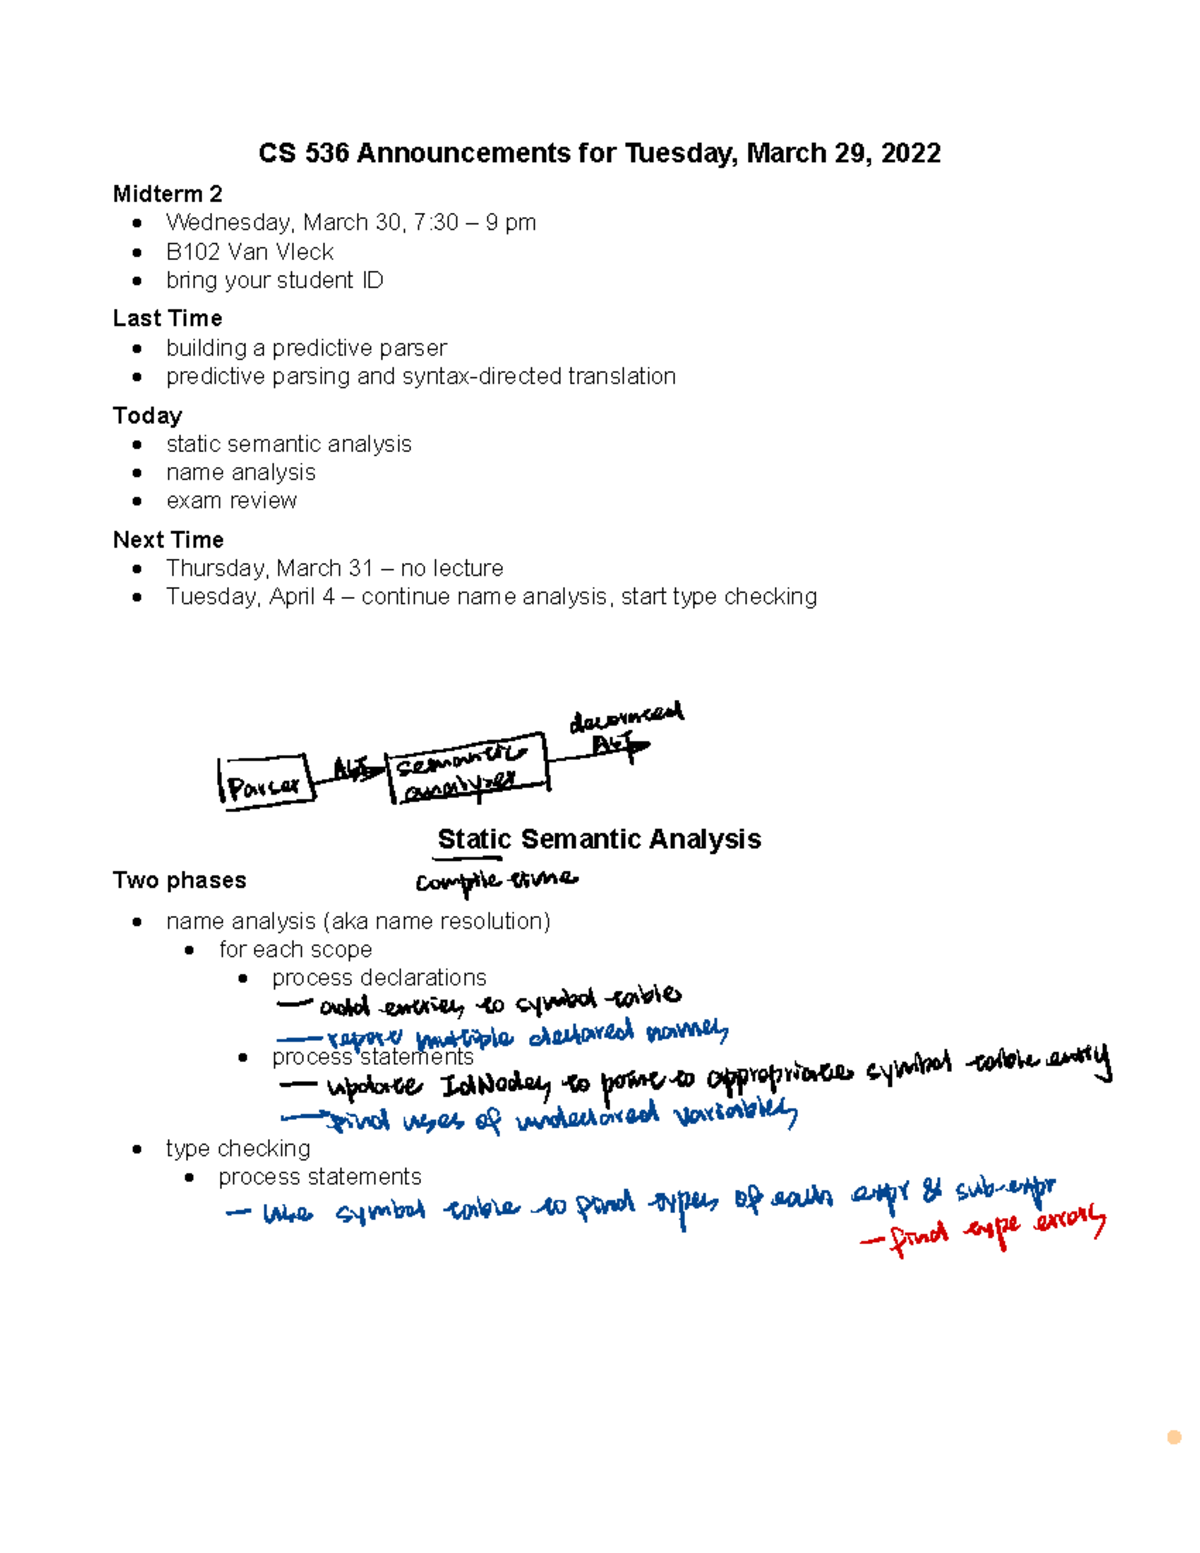 CS 536 Announcements for Tuesday, March 29, 2022
Midterm 2
• Wednesday, March 30, 7:30 – 9 pm
• B102 Van Vleck
• bring your student ID
Last Time
• building a predictive parser
• predictive parsing and syntax-directed translation
Today
• static semantic analysis
• name analysis
• exam review
Next Time
• Thursday, March 31 – no lecture
• Tuesday, April 4 – continue name analysis, start type checking
Parser
AST
semantic
analyzer
AST
Static Semantic Analysis
compile time
Two phases
• name analysis (aka name resolution)
• for each scope
• process declarations
— add entries to symbol table
— report multiple declared names
• process statements
— update IdNodes to point to appropriate symbol table entry
— find uses of undeclared variables
• type checking
• process statements
— use symbol table to find types of each expr & sub-expr
— find type errors